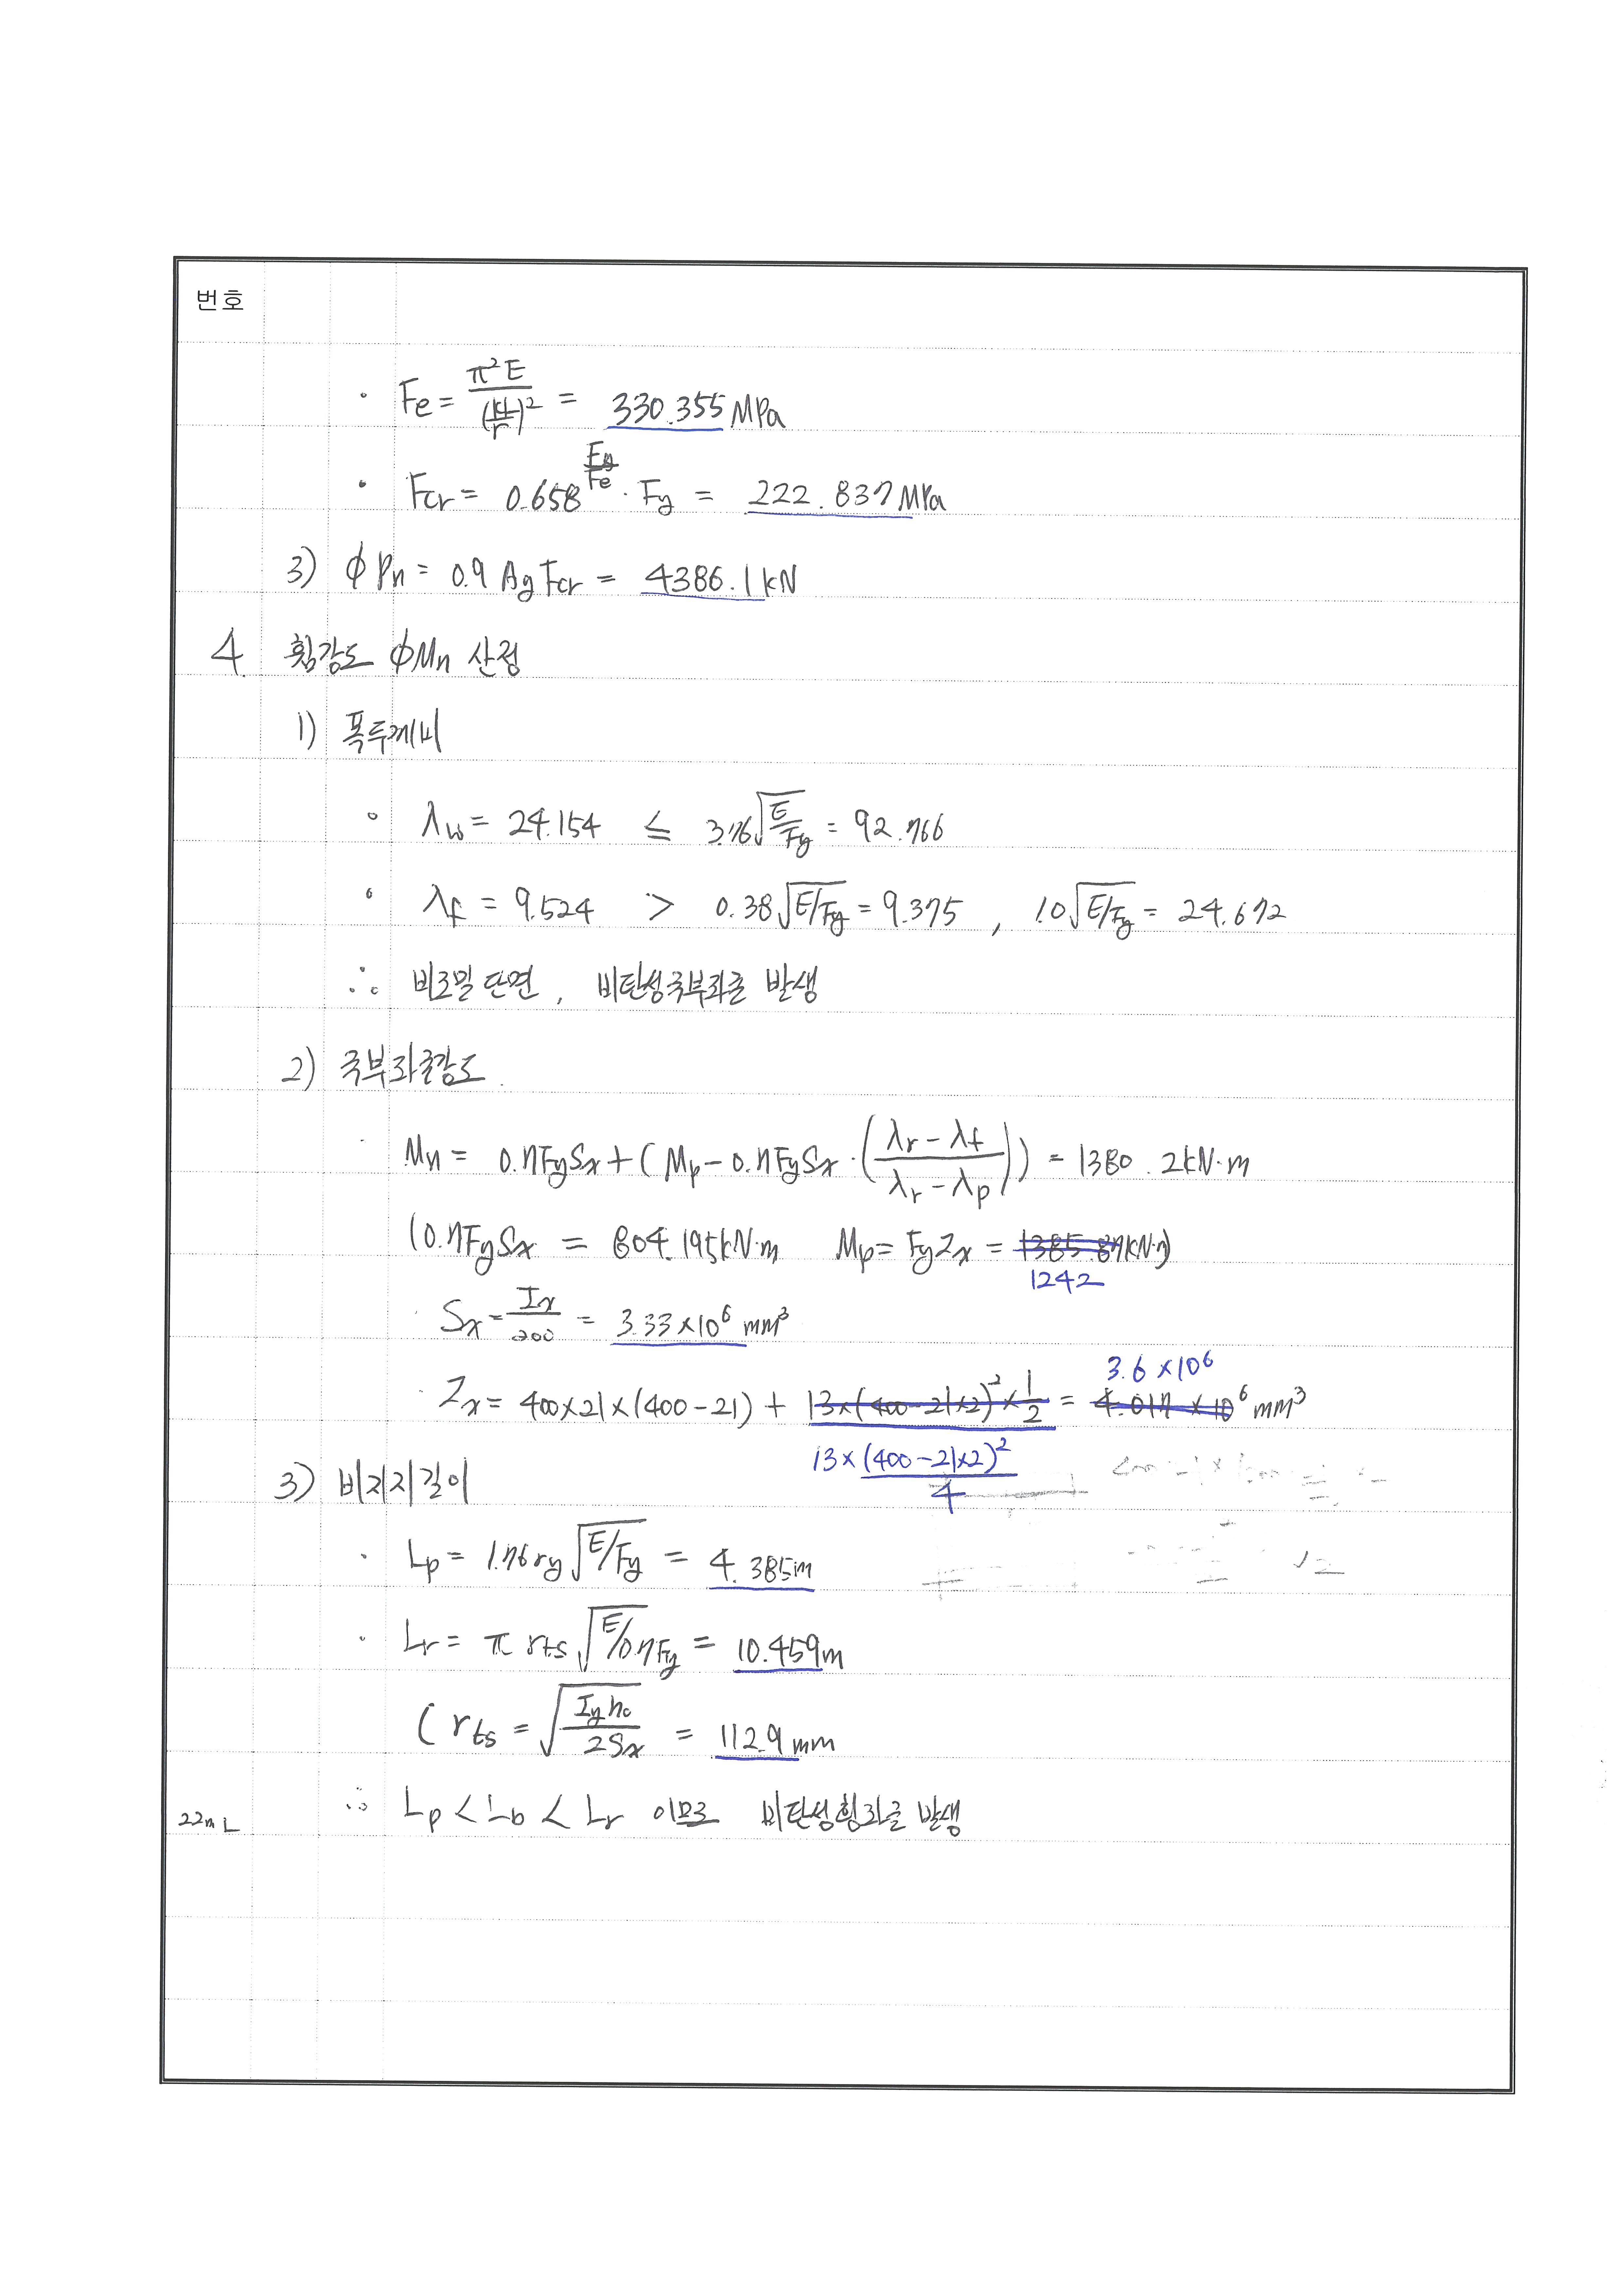 번호
· Fe = π²E / (kl/r)² = 330.355 MPa
· Fcr = 0.658^(Fy/Fe) · Fy = 222.837 MPa
3) ϕPn = 0.9 Ag Fcr = 4386.1 kN
4. 휨강도 ϕMn 산정
1) 폭두께비
∘ λw = 24.154 ≤ 3.76√(E/Fy) = 92.766
∘ λf = 9.524 > 0.38√(E/Fy) = 9.375 , 1.0√(E/Fy) = 24.672
∴ 비조밀 단면, 비탄성국부좌굴 발생
2) 국부좌굴강도
· Mn = 0.7FySx + (Mp - 0.7FySx · ((λr - λf) / (λr - λp))) = 1380.2 kN·m
(0.7FySx = 804.195 kN·m Mp = FyZx = 1385.87 kN·m)
1242
· Sx = Ix / 200 = 3.33 × 10⁶ mm³
3.6 × 10⁶
· Zx = 400×21×(400-21) + 13×(400-21×2)² × 1/2 = 4.017 × 10⁶ mm³
13×(400-21×2)² / 4
3) 비지지길이
· Lp = 1.76 ry √(E/Fy) = 4.385 m
· Lr = π rts √(E/0.7Fy) = 10.459 m
( rts = √(Iy ho / 2Sx) = 112.9 mm
∴ Lp < Lb < Lr 이므로 비탄성횡좌굴 발생
22m L